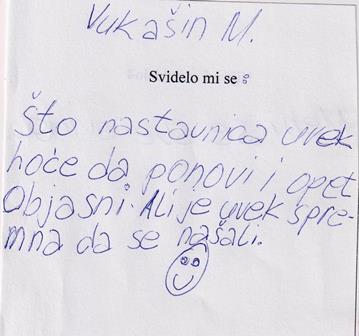 Vukašin M.
Svidelo mi se :
Što nastavnica uvek
hoće da ponovi i opet
Objasni. Ali je uvek spre-
mna da se našali.